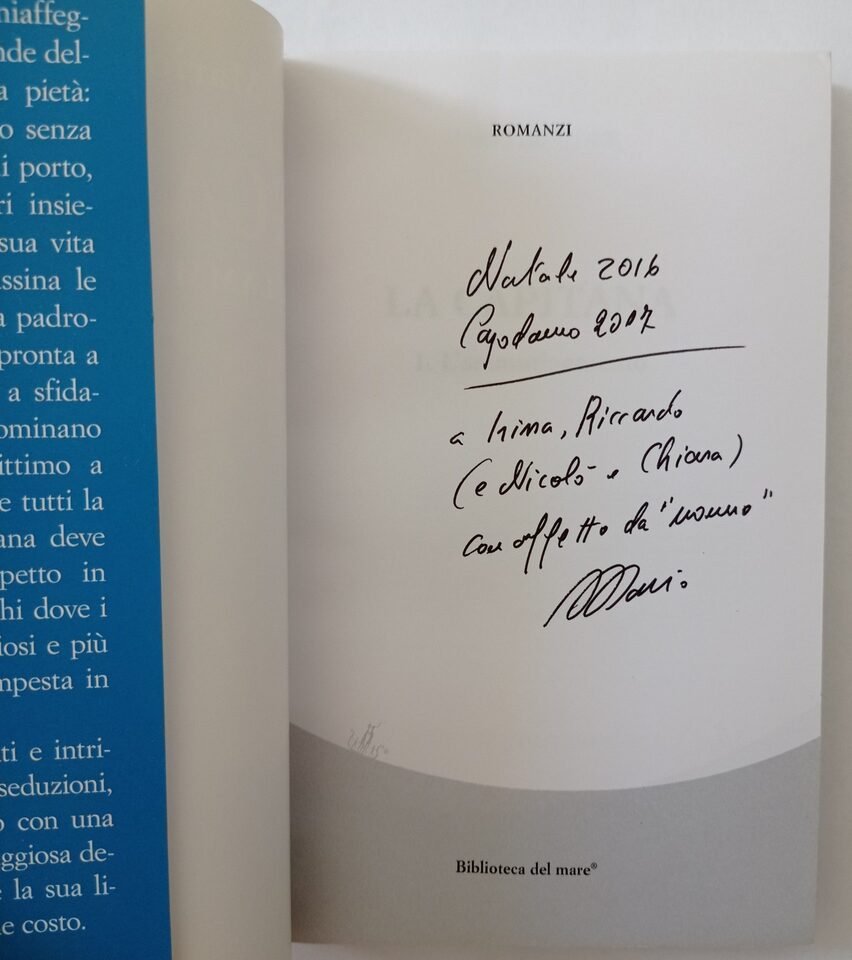 hiaffeg-
nde del-
a pietà:
o senza
i porto,
ri insie-
sua vita
assina le
a padro-
pronta a
a sfida-
ominano
ittimo a
e tutti la
ana deve
petto in
hi dove i
iosi e più
mpesta in
ti e intri-
seduzioni,
o con una
ggiosa de-
e la sua li-
e costo.
ROMANZI
LA CAPITANA
Natale 2016
Capodanno 2017
a Irina, Riccardo
(e Nicolò e Chiara)
con affetto da "nonno"
Mario
Biblioteca del mare®